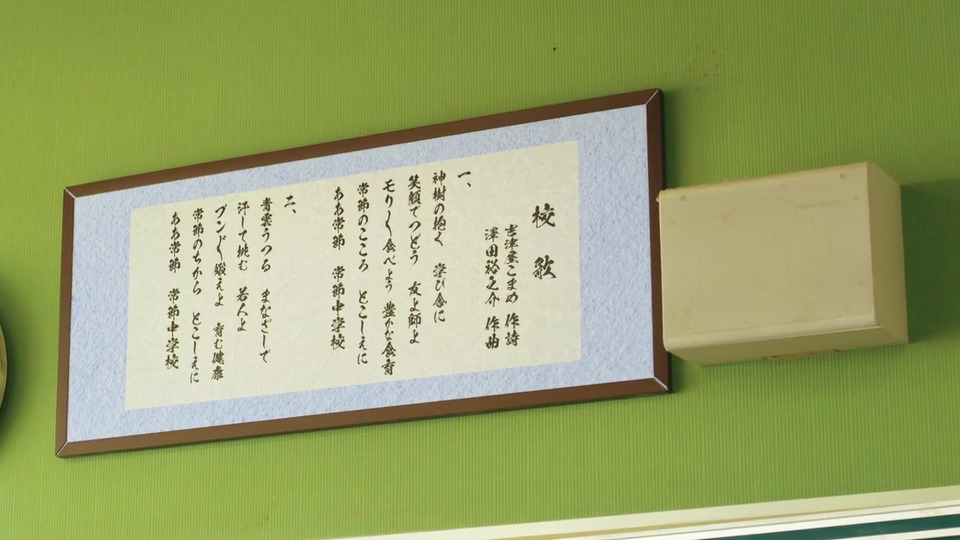 校歌
吉津屋こまめ 作詩
澤田裕之介 作曲
一、
神樹の抱く 学び舎に
笑顔でつどう 友よ師よ
モリ〳〵食べよう 豊かな食育
常節のこころ とこしえに
ああ常節 常節中学校
二、
青雲うつる まなざしで
汗して挑む 若人よ
グン〴〵鍛えよ 育む健康
常節のちから とこしえに
ああ常節 常節中学校